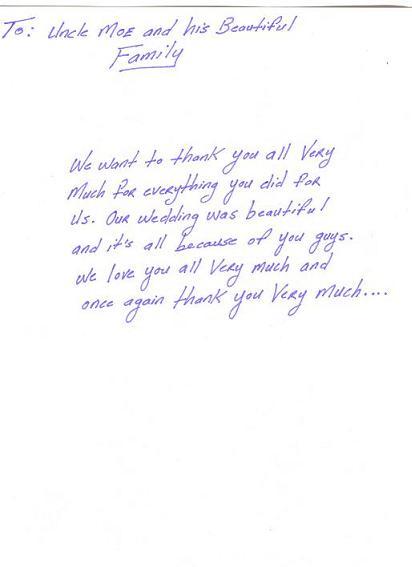 To: Uncle Moe and his Beautiful
Family
We want to thank you all Very
Much for everything you did for
Us. Our wedding was beautiful
and it's all because of you guys.
We love you all Very much and
once again thank you Very much....